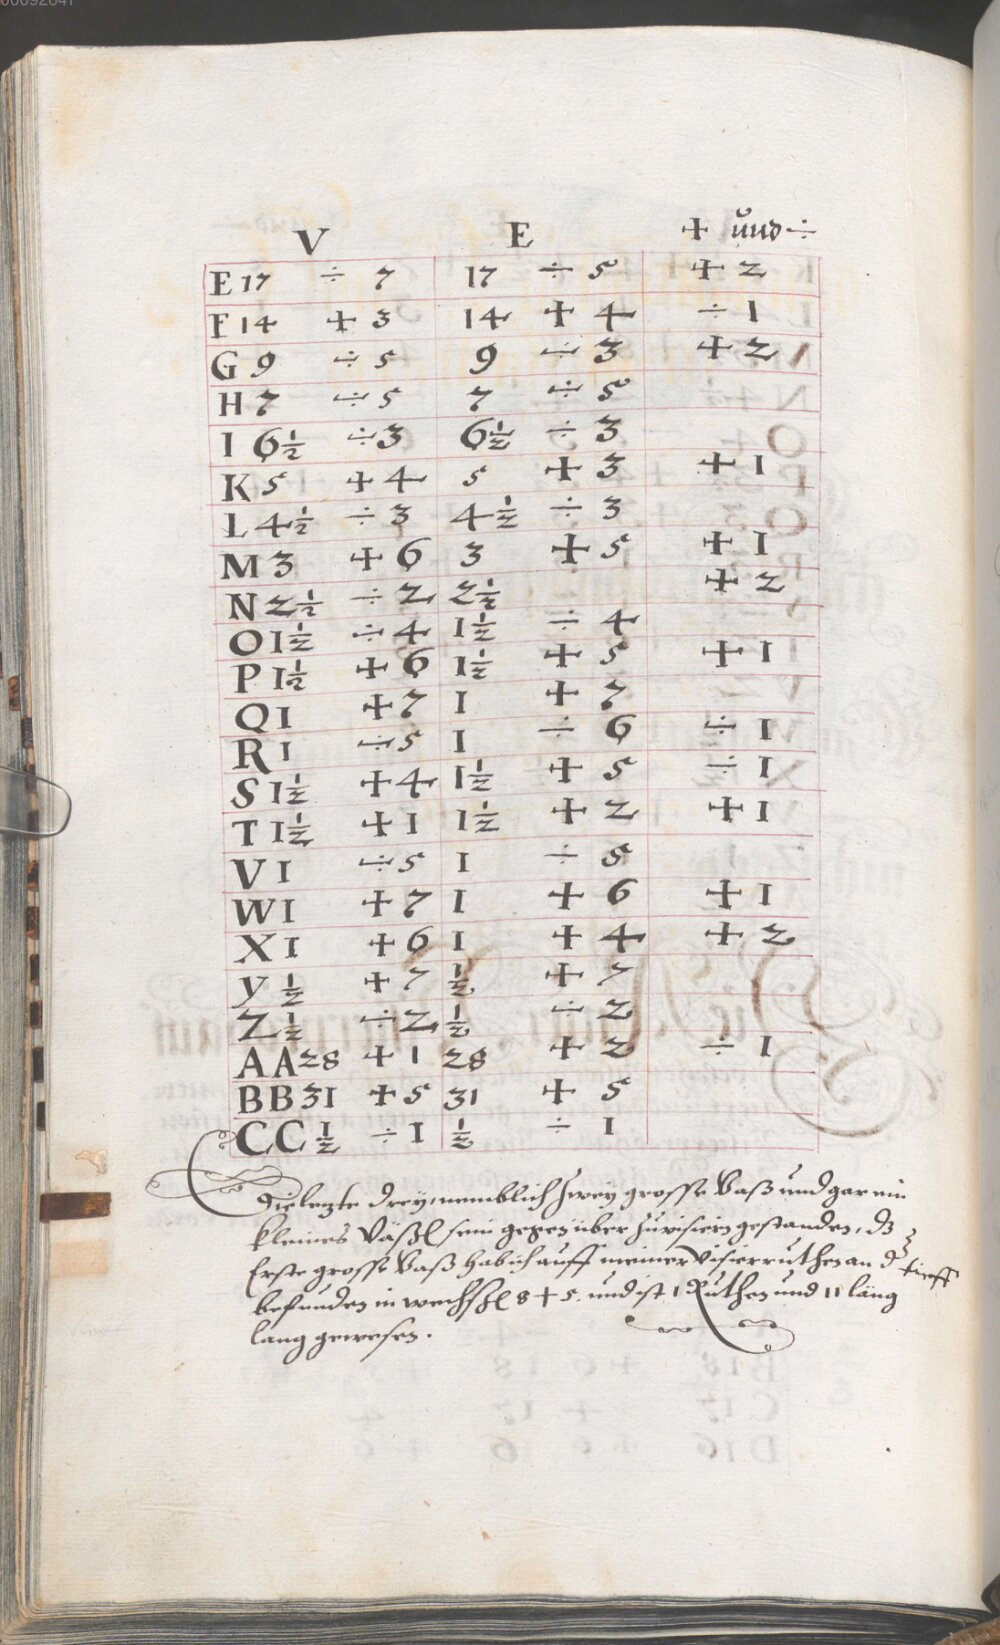 V E + und ÷
E 17 ÷ 7 17 ÷ 5 + 2
F 14 + 3 14 + 4 ÷ 1
G 9 ÷ 5 9 ÷ 3 + 2
H 7 ÷ 5 7 ÷ 5
I 6½ ÷ 3 6½ ÷ 3
K 5 + 4 5 + 3 + 1
L 4½ ÷ 3 4½ ÷ 3
M 3 + 6 3 + 5 + 1
N 2½ ÷ 2 2½ + 2
O 1½ ÷ 4 1½ ÷ 4
P 1½ + 6 1½ + 5 + 1
Q 1 + 7 1 + 7
R 1 ÷ 5 1 ÷ 6 ÷ 1
S 1½ + 4 1½ + 5 ÷ 1
T 1½ + 1 1½ + 2 + 1
V 1 ÷ 5 1 ÷ 5
W 1 + 7 1 + 6 + 1
X 1 + 6 1 + 4 + 2
y ½ + 7 ½ + 7
Z ½ ÷ 2 ½ ÷ 2
A A 28 + 1 28 + 2 ÷ 1
B B 31 + 5 31 + 5
C C ½ ÷ 1 ½ ÷ 1
Die letzte drey, nemblich zwey grosse Vaß und gar ein
kleines Väßl sein gegen über zu visiern gestanden, dz
Erste grosse Vaß hab ich auff meiner Visierruthen an d tieff
befunden in 8 + 5. und ist 1 Ruthen und 11 läng
lang gewesen.